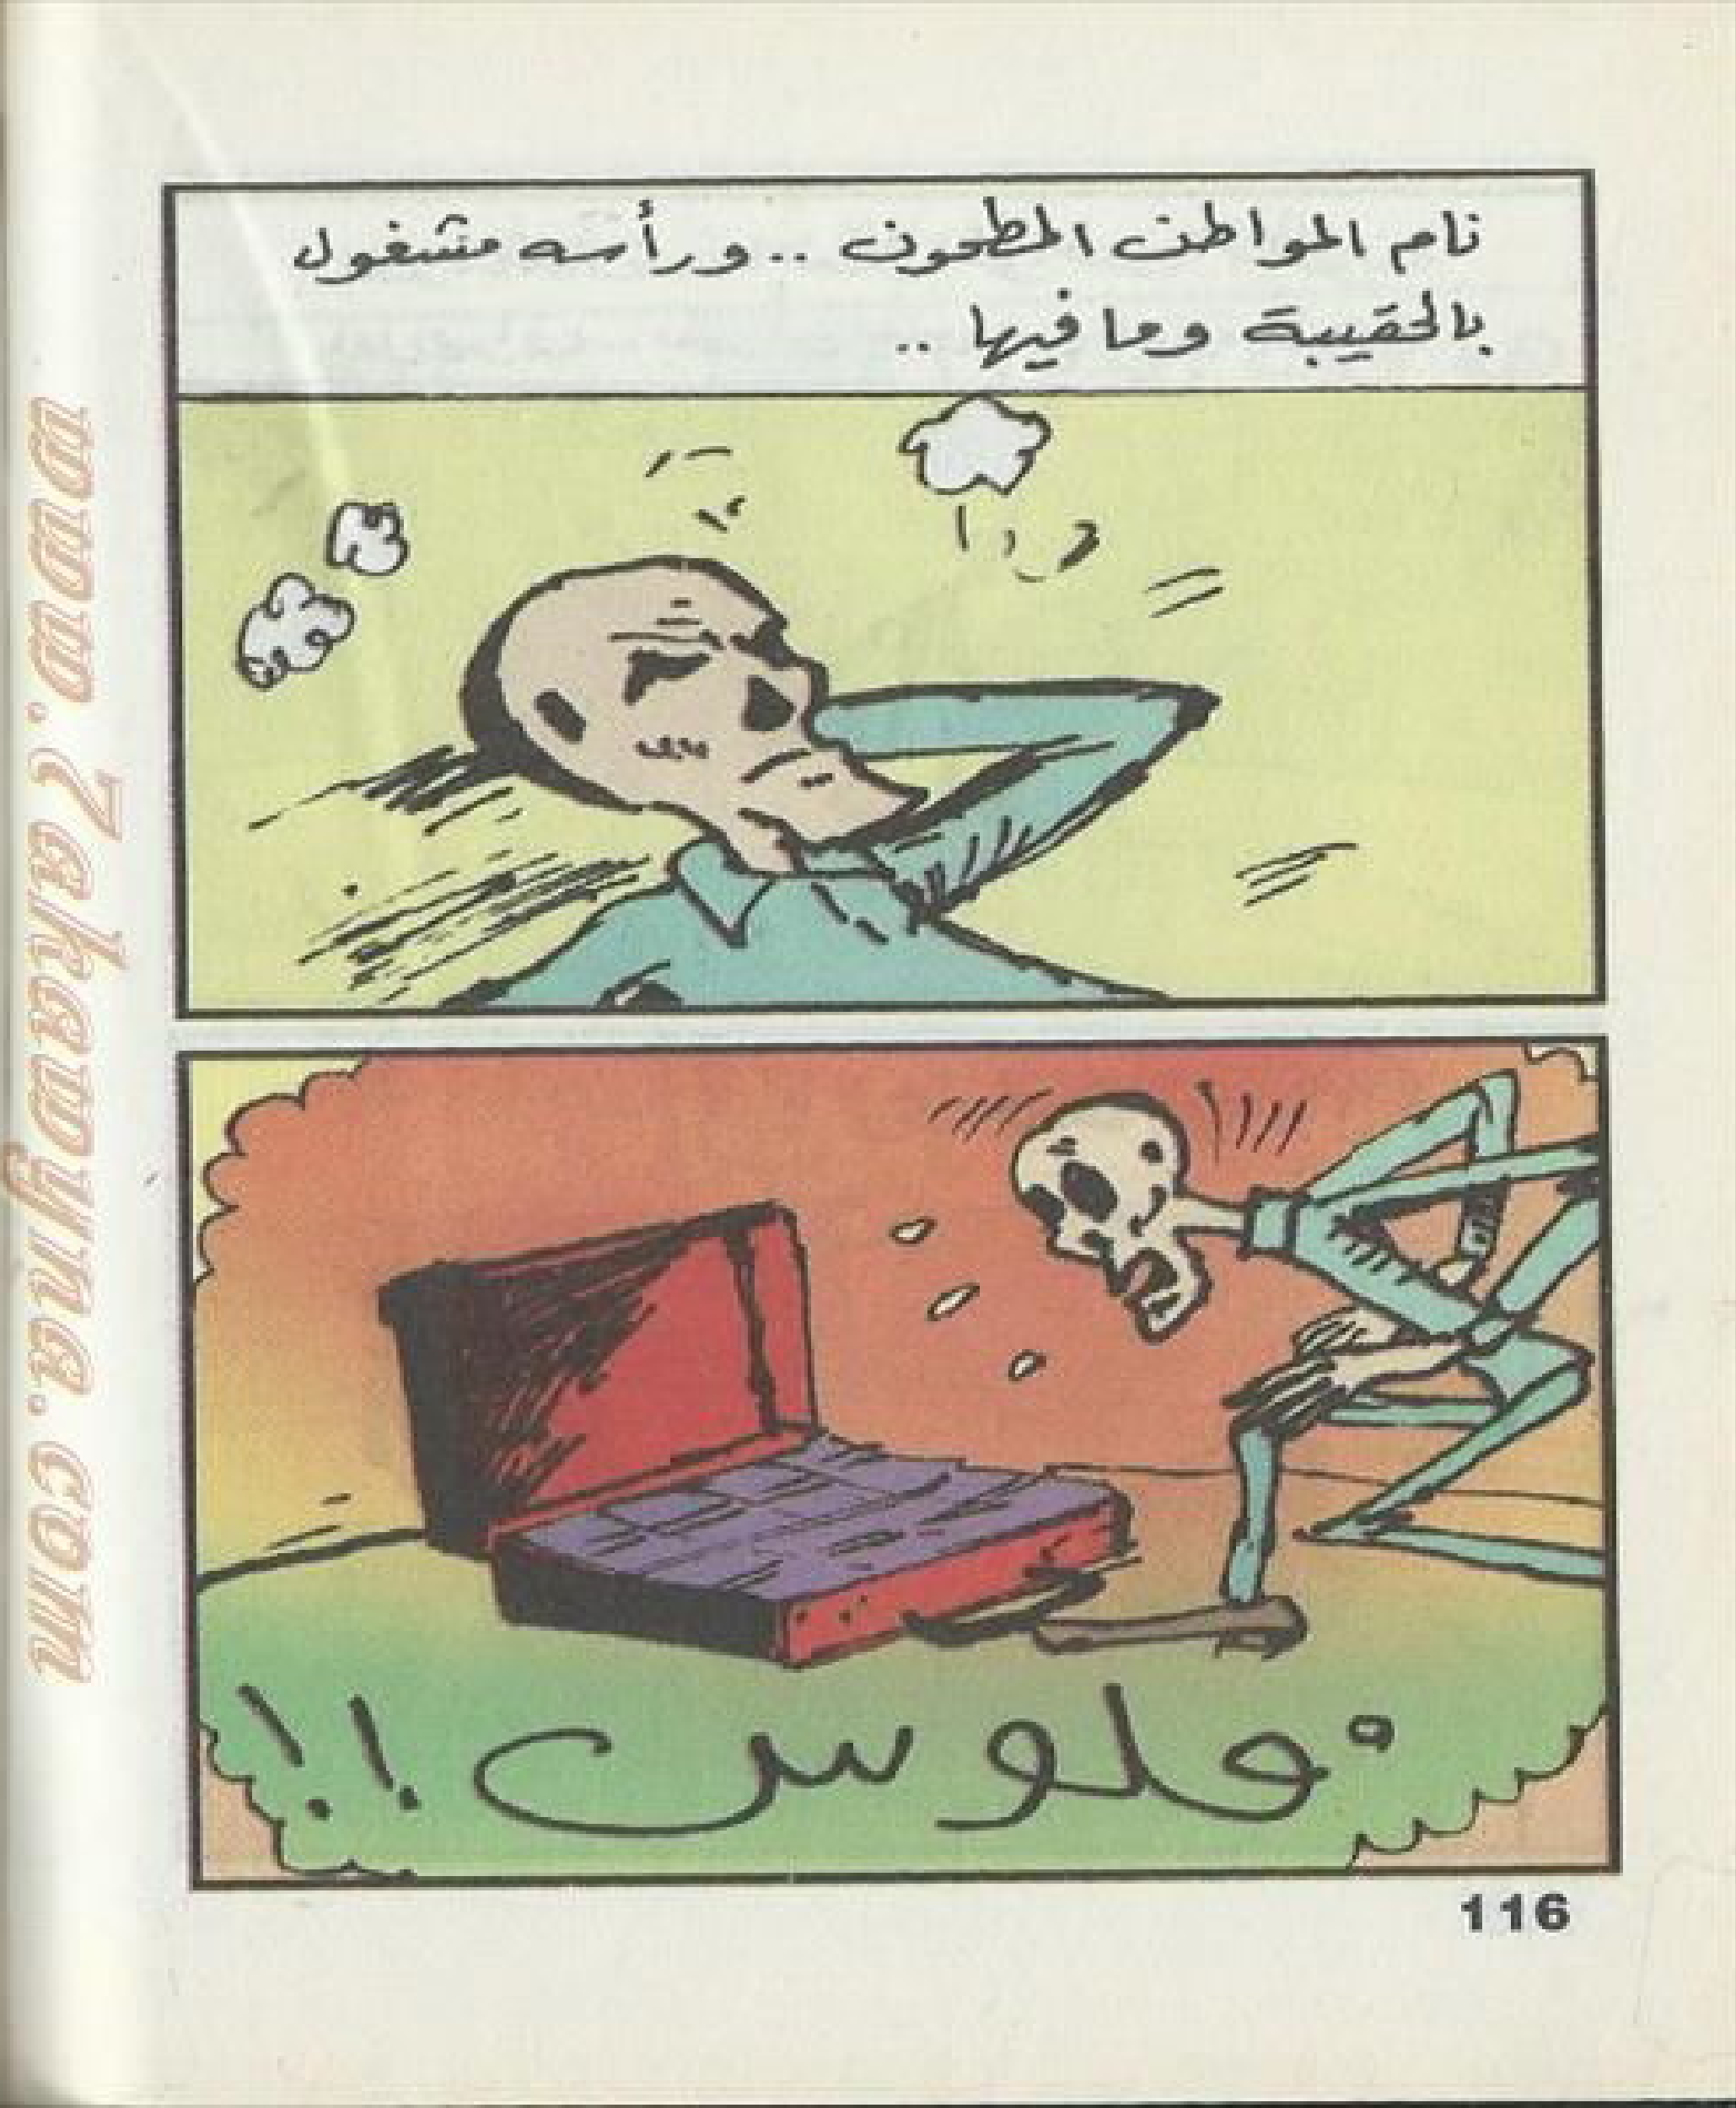 نام المواطن المطحون .. ورأسه مشغول
بالحقيبة وما فيها ..
فلوس !!
116
www.7ekawyina.com